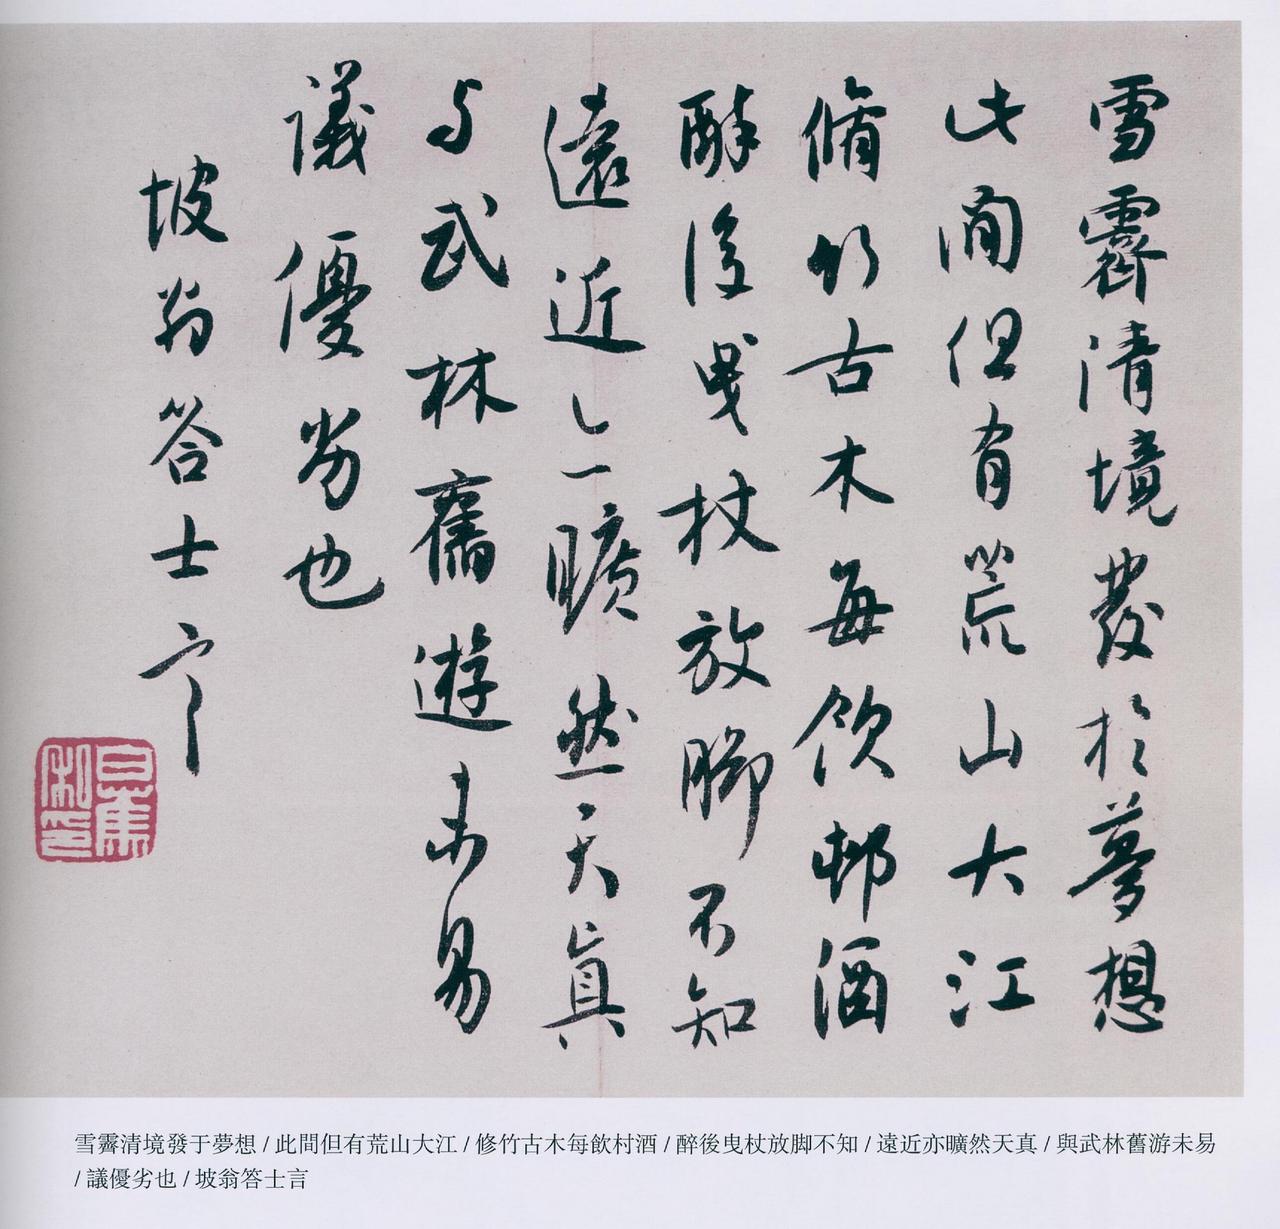 雪霽清境發於夢想
此間但有荒山大江
脩竹古木每飲邨酒
醉後曳杖放腳不知
遠近亦曠然天真
与武林舊遊未易
議優劣也
坡翁答士言
白蕉私印
雪霽清境發于夢想 / 此間但有荒山大江 / 修竹古木每飲村酒 / 醉後曳杖放脚不知 / 遠近亦曠然天真 / 與武林舊游未易
/ 議優劣也 / 坡翁答士言